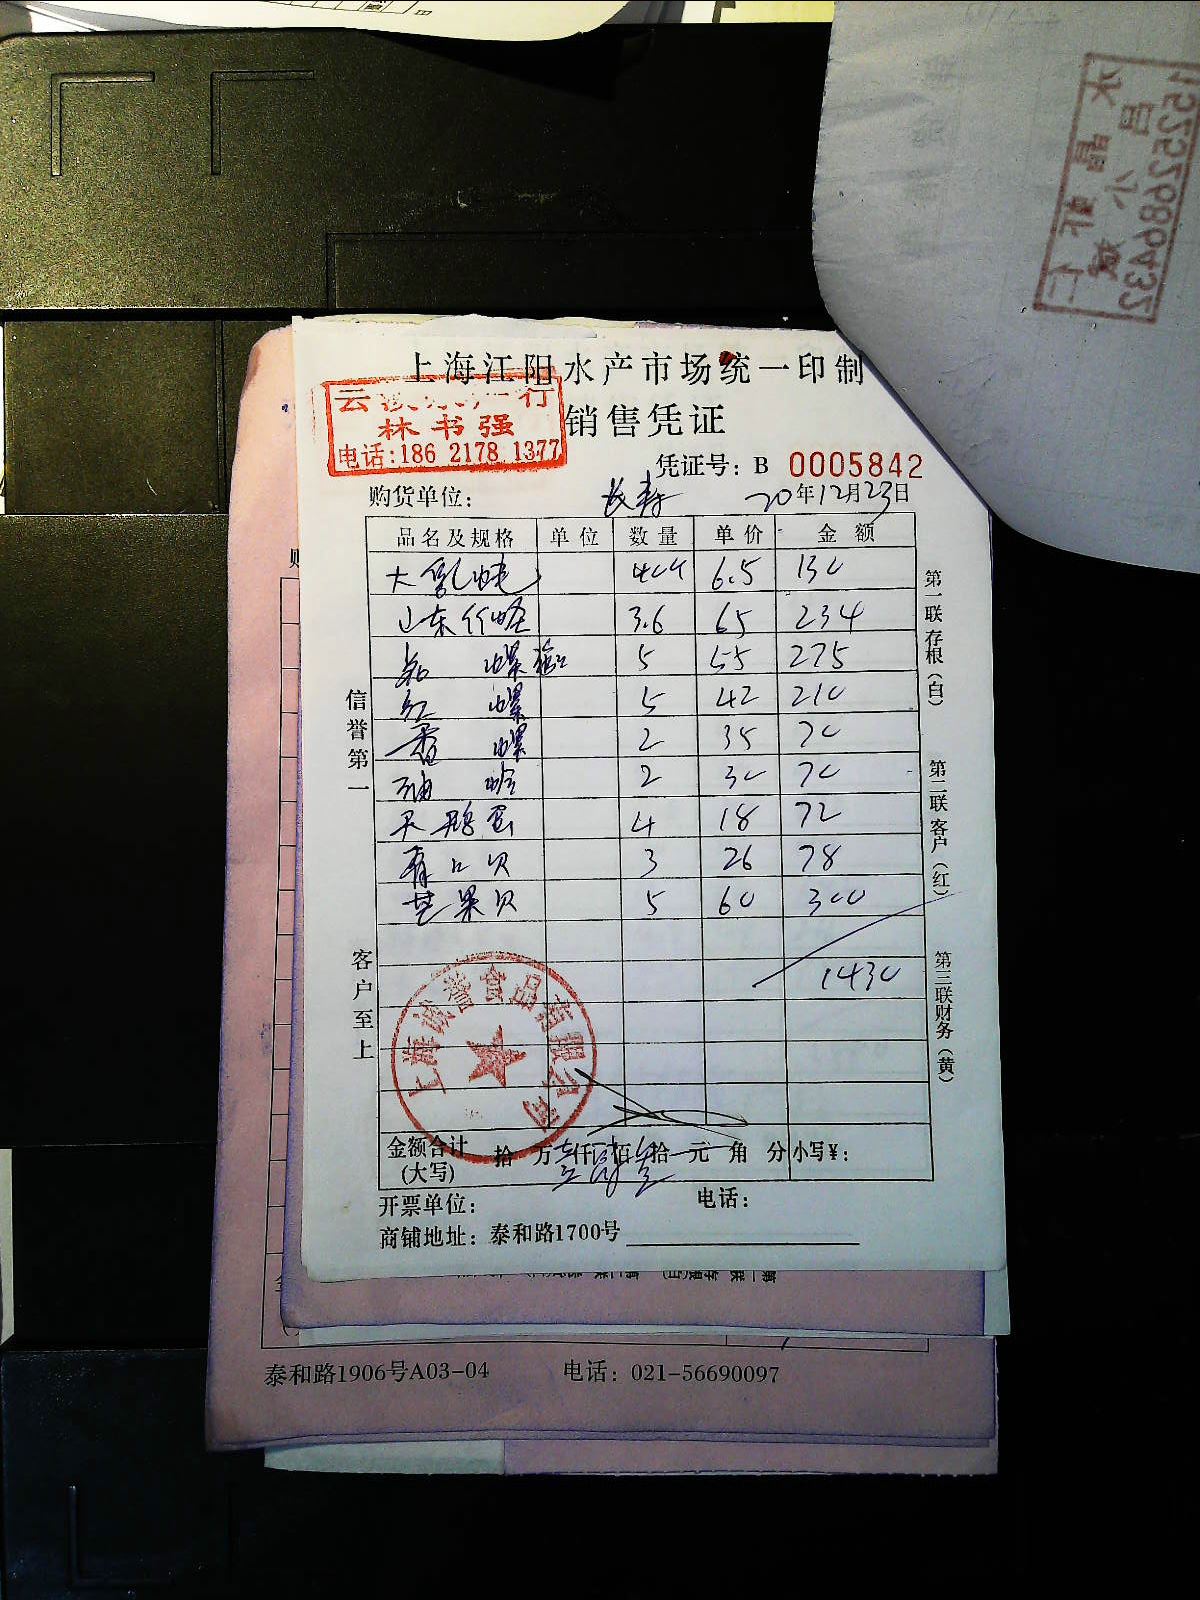 上海江阳水产市场统一印制
销售凭证
林书强
电话:186 2178 1377
凭证号: B 0005842
购货单位: 长寿 20年12月23日
品名及规格 单位 数量 单价 金额
大乳蚝 6.5 130
山东竹蛏 3.6 65 234
螺 5 55 275
红螺 5 42 210
香螺 2 35 70
油蛤 2 30 70
天鹅蛋 4 18 72
青口贝 3 26 78
芒果贝 5 60 300
1430
金额合计(大写) 拾 万 仟 佰 拾 元 角 分 小写¥:
开票单位: 电话:
商铺地址: 泰和路1700号
信誉第一
客户至上
第一联 存根(白)
第二联 客户(红)
第三联 财务(黄)
上海诚誉食品有限公司
泰和路1906号A03-04 电话: 021-56690097
15252686432